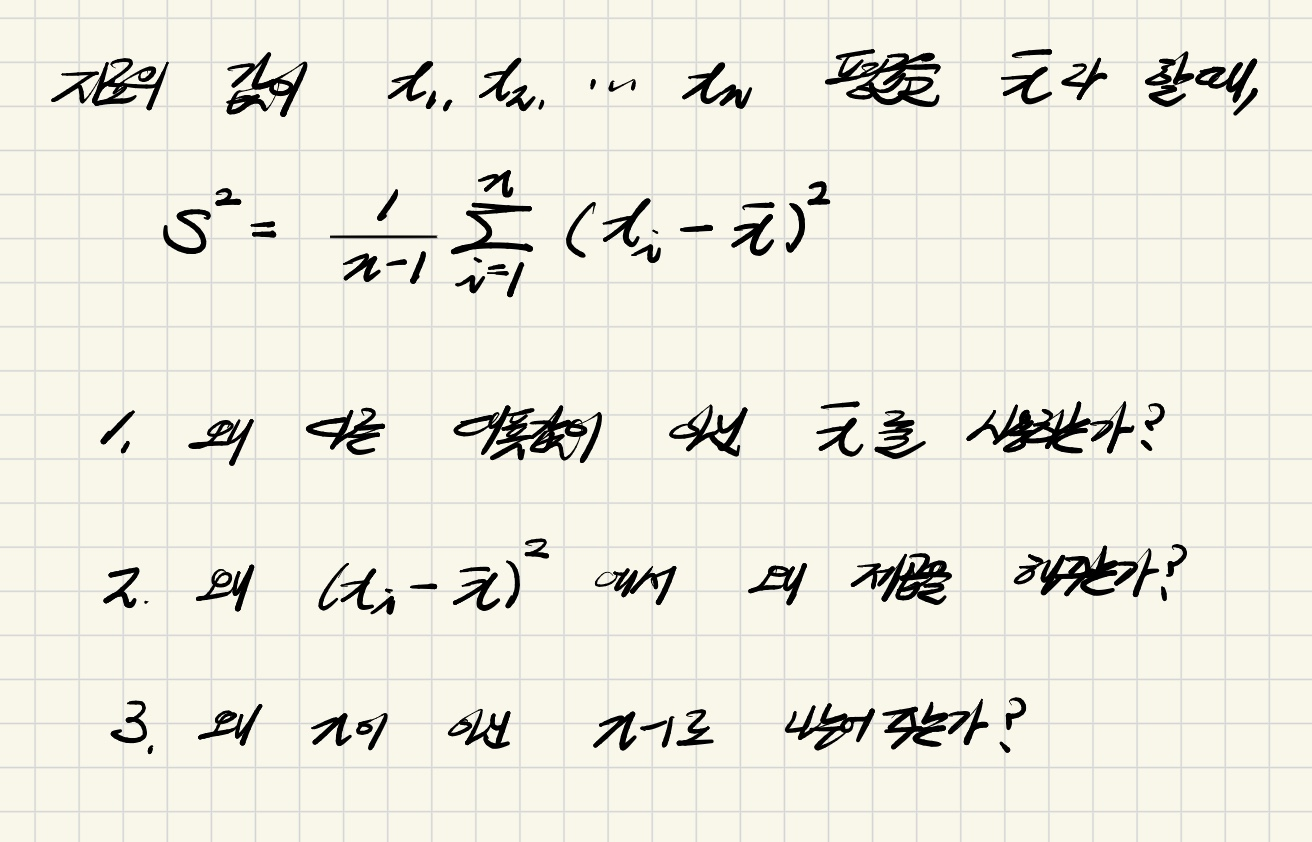 자료의 값이 x₁, x₂, ... xₙ 평균을 x̄라 할 때,
S² = 1/(n-1) Σ_{i=1}^{n} (xᵢ - x̄)²
1. 왜 다른 대푯값이 아닌 x̄를 사용하는가?
2. 왜 (xᵢ - x̄)² 에서 왜 제곱을 해주는가?
3. 왜 n이 아닌 n-1로 나누어 주는가?